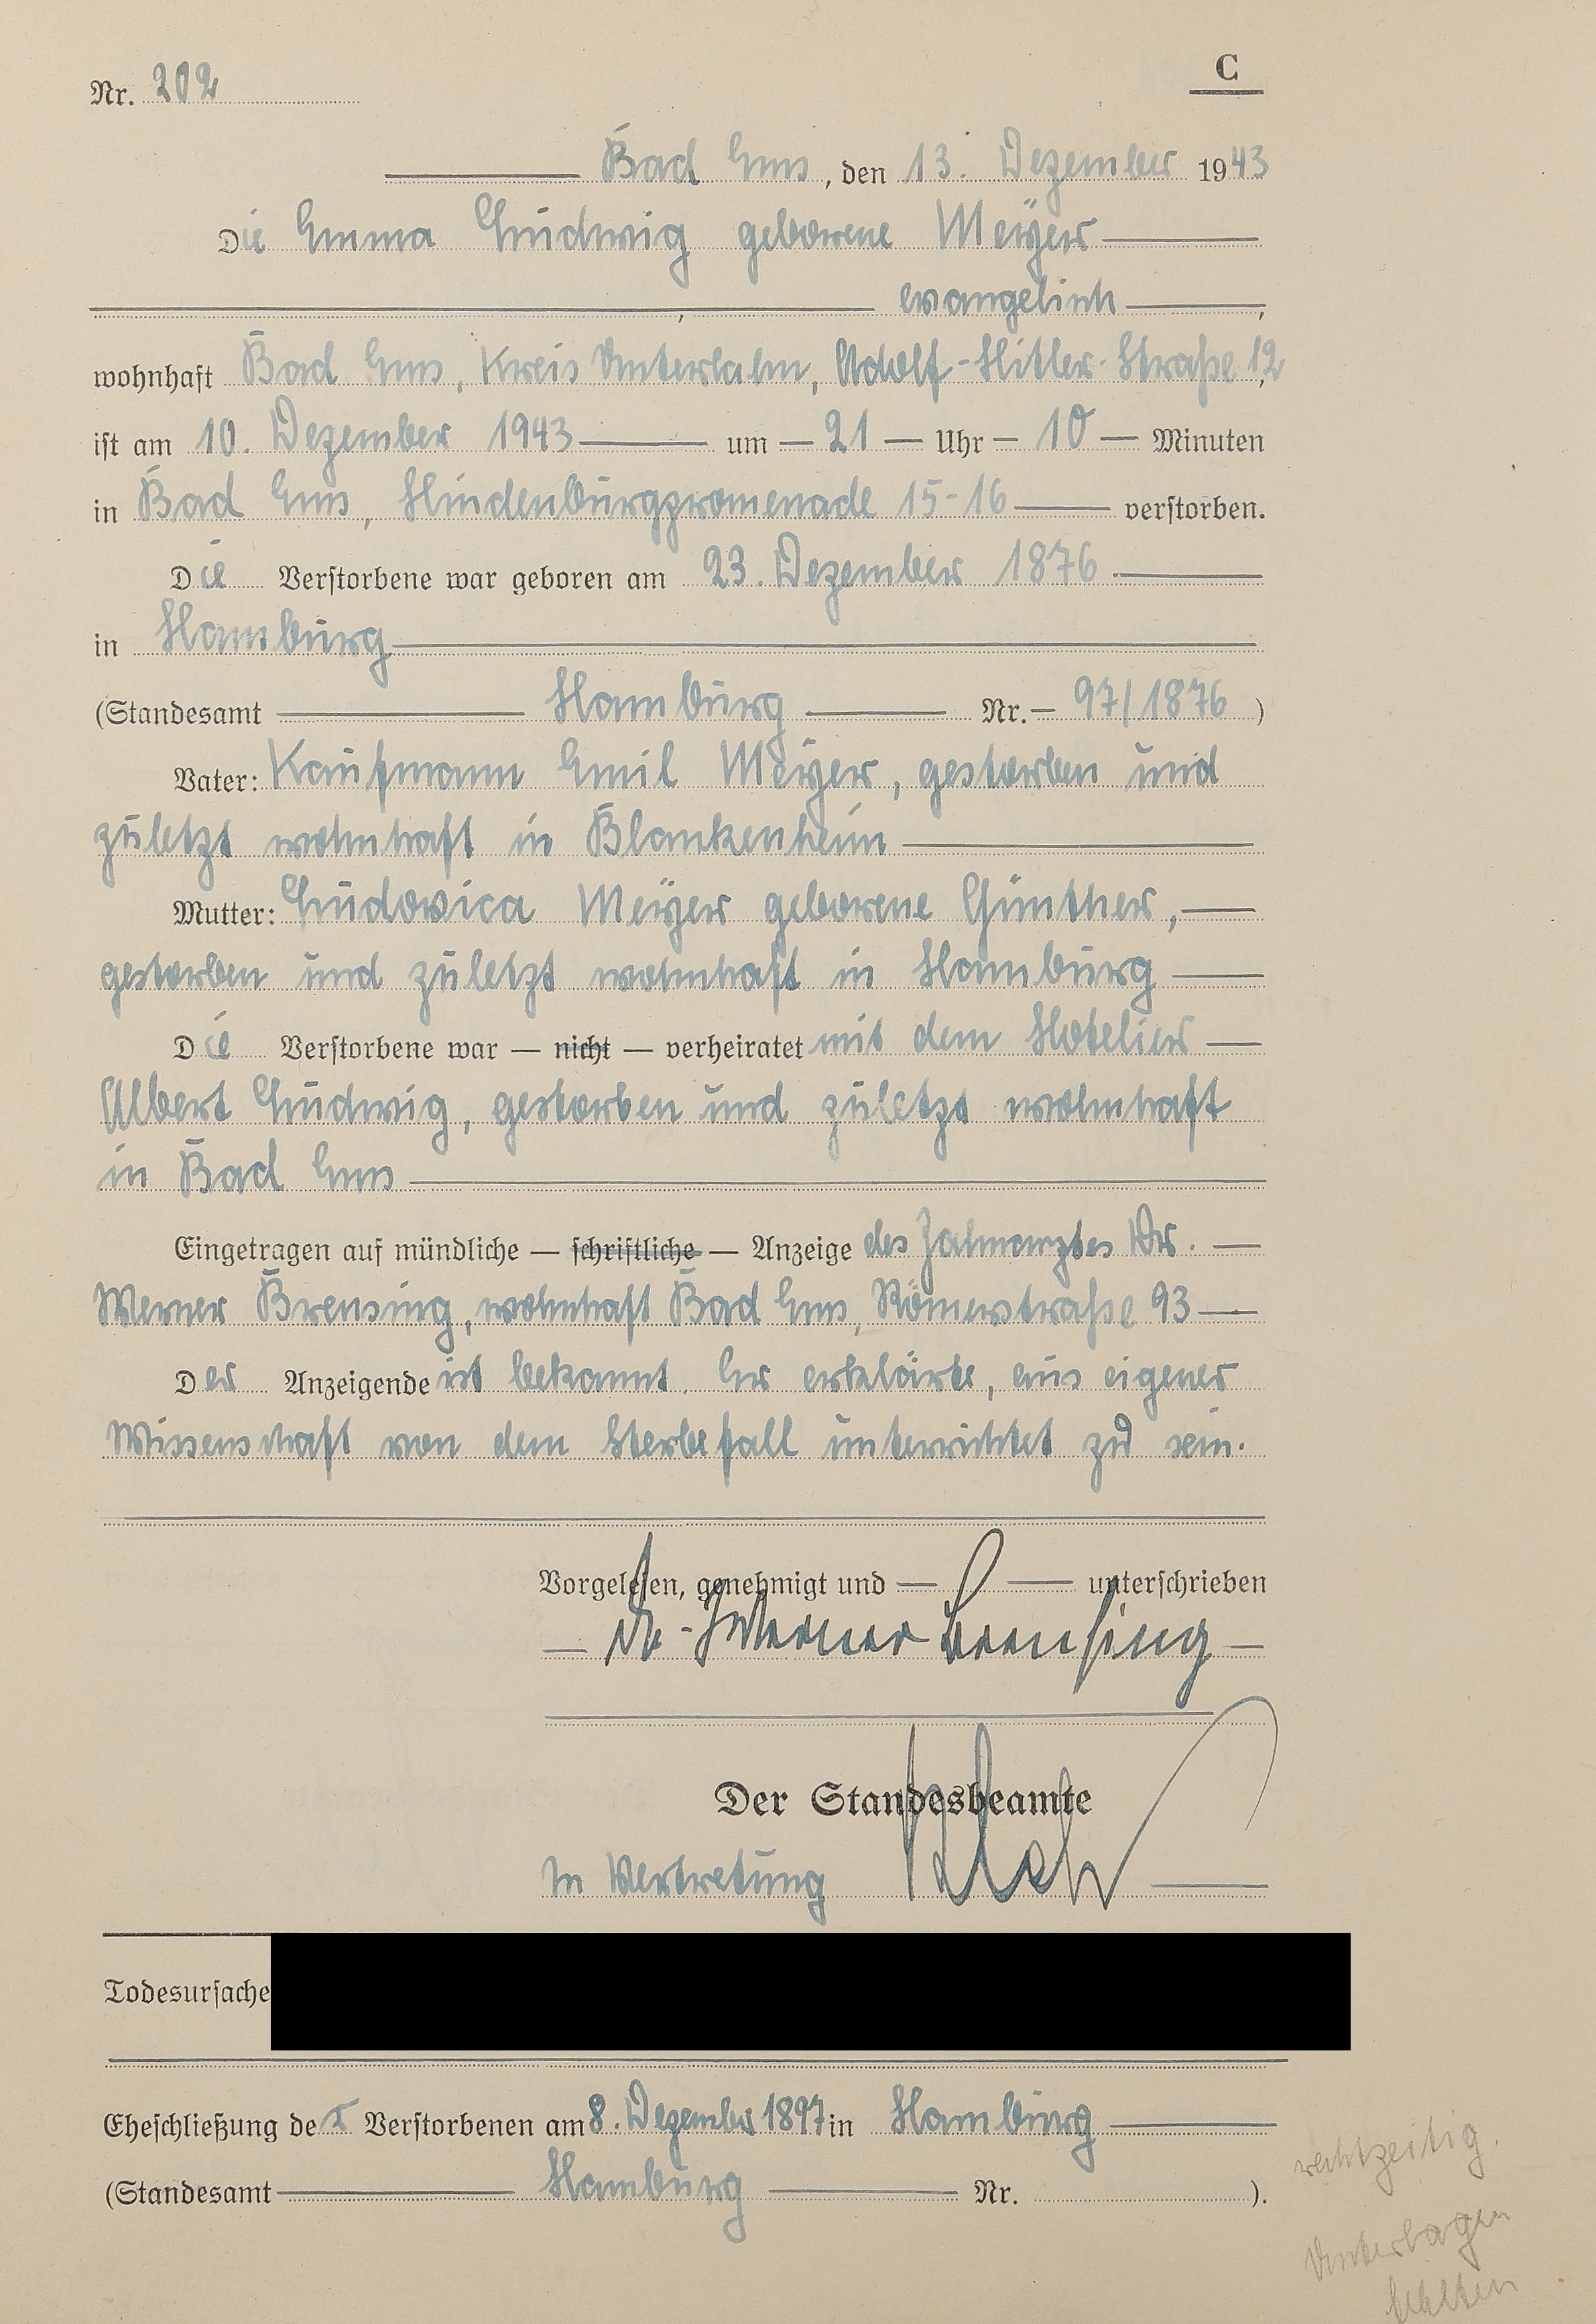 Nr. 202
C
Bad Ems, den 13. Dezember 1943
Die Emma Ludwig geborene Meyer
, evangelisch,
wohnhaft Bad Ems, Kreis Unterlahn, Adolf-Hitler-Straße 12,
ist am 10. Dezember 1943 um — 21 — Uhr — 10 — Minuten
in Bad Ems, Hindenburgpromenade 15-16 verstorben.
Die Verstorbene war geboren am 23. Dezember 1876
in Hamburg
(Standesamt Hamburg Nr. — 97/1876)
Vater: Kaufmann Emil Meyer, gestorben und
zuletzt wohnhaft in Blankenheim
Mutter: Ludovica Meyer geborene Günther,
gestorben und zuletzt wohnhaft in Hamburg
Die Verstorbene war — nicht — verheiratet mit dem Hotelier
Albert Ludwig, gestorben und zuletzt wohnhaft
in Bad Ems
Eingetragen auf mündliche — schriftliche — Anzeige des Zahnarztes Dr.
Werner Brensing, wohnhaft Bad Ems, Römerstraße 93
Der Anzeigende ist bekannt. Er erklärte, aus eigener
Wissenschaft von dem Sterbefall unterrichtet zu sein.
Vorgelesen, genehmigt und — unterschrieben
Dr. Werner Brensing
Der Standesbeamte
In Vertretung
Todesursache
Eheschließung der Verstorbenen am 8. Dezember 1897 in Hamburg
(Standesamt Hamburg Nr. ).
rechtzeitig.
Unterlagen
fehlten